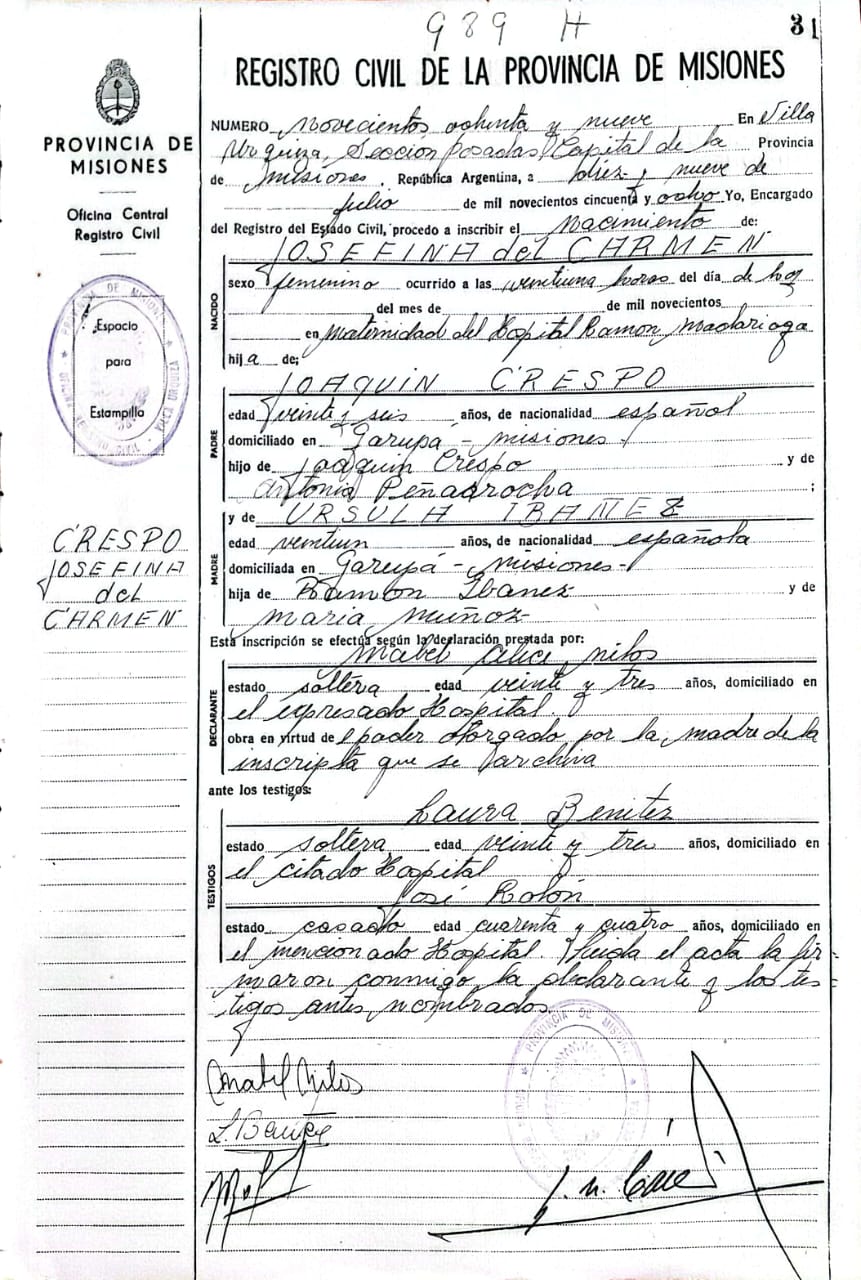 989 H
31
REGISTRO CIVIL DE LA PROVINCIA DE MISIONES
PROVINCIA DE
MISIONES
Oficina Central
Registro Civil
Espacio
para
Estampilla
CRESPO
JOSEFINA
del
CARMEN
NUMERO novecientos ochenta y nueve En Villa
Urquiza, Seccion Posadas Capital de la Provincia
de Misiones, República Argentina, a diez y nueve de
julio de mil novecientos cincuenta y ocho Yo, Encargado
del Registro del Estado Civil, procedo a inscribir el nacimiento de:
JOSEFINA del CARMEN
NACIDO
sexo femenino ocurrido a las veintiuna horas del día de hoy
del mes de de mil novecientos
en Maternidad del Hospital Ramon Madariaga
hija de;
JOAQUIN CRESPO
PADRE
edad veinte y seis años, de nacionalidad español
domiciliado en Garupá - misiones
hijo de Joaquin Crespo y de
Antonia Peñarrocha ;
y de URSULA IBAÑEZ
MADRE
edad veintiun años, de nacionalidad española
domiciliada en Garupá - Misiones -
hija de Ramon Ibanez y de
Maria Muñoz
Esta inscripción se efectúa según la declaración prestada por:
Mabel Alice Nilos
DECLARANTE
estado soltera edad veinte y tres años, domiciliado en
el expresado Hospital
obra en virtud de el poder otorgado por la madre de la
inscripta que se archiva
ante los testigos:
Laura Benitez
TESTIGOS
estado soltera edad veinte y tres años, domiciliado en
el citado Hospital
José Rolón
estado casado edad cuarenta y cuatro años, domiciliado en
el mencionado Hospital. Leida el acta la fir
maron conmigo la declarante y los tes
tigos antes nombrados
Mabel Nilos
L. Benitez
PROVINCIA DE MISIONES